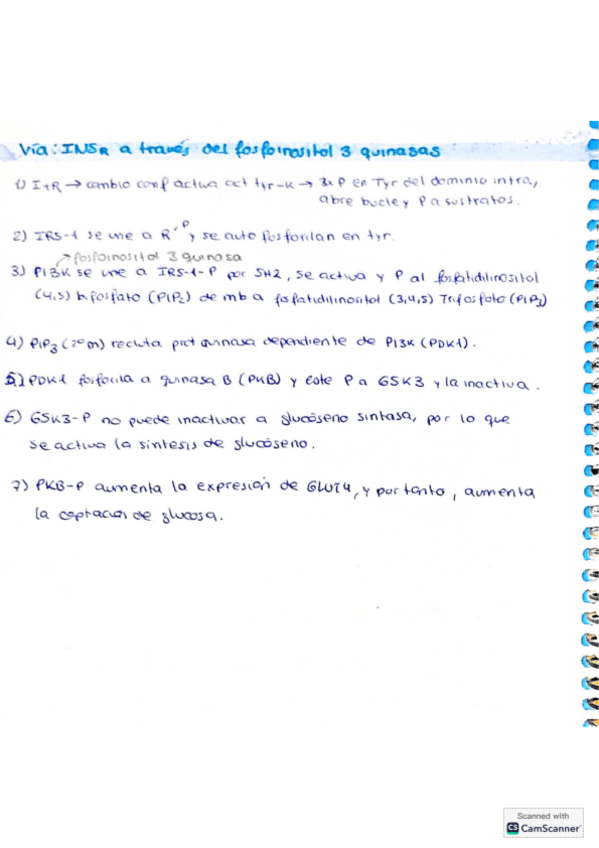 Vía: INSR a través del fosfoinositol 3 quinasas
1) I+R → cambio conf activa act tyr-K → 3x P en Tyr del dominio intra,
abre bucle y P a sustratos.
2) IRS-1 se une a R-P y se auto fosforilan en tyr.
↗ fosfoinositol 3 quinasa
3) PI3K se une a IRS-1-P por SH2, se activa y P al fosfatidilinositol
(4,5) bifosfato (PIP2) de mb a fosfatidilinositol (3,4,5) Trifosfato (PIP3)
4) PIP3 (2º m) recluta prot quinasa dependiente de PI3K (PDK1).
5) PDK1 fosforila a quinasa B (PKB) y éste P a GSK3 y la inactiva.
6) GSK3-P no puede inactivar a glucógeno sintasa, por lo que
se activa la síntesis de glucógeno.
7) PKB-P aumenta la expresión de GLUT4, y por tanto, aumenta
la captación de glucosa.
Scanned with
CS CamScanner